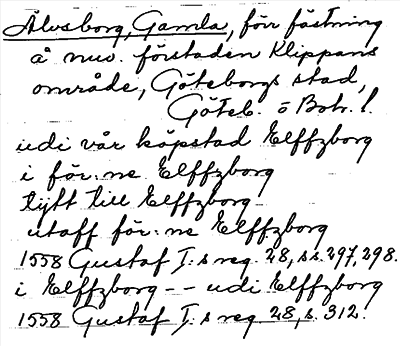 Älvsborg, Gamla, förr fästning
å nuv. förstaden Klippans
område, Göteborgs stad,
Göteb. o Boh. l.
udi vår köpstad Elffzborg
i för:ne Elffzborg
lyfft till Elffzborg
utaff för:ne Elffzborg
1558 Gustaf I:s reg. 28, ss. 297, 298.
i Elffzborg -- udi Elffzborg
1558 Gustaf I:s reg. 28, s. 312.